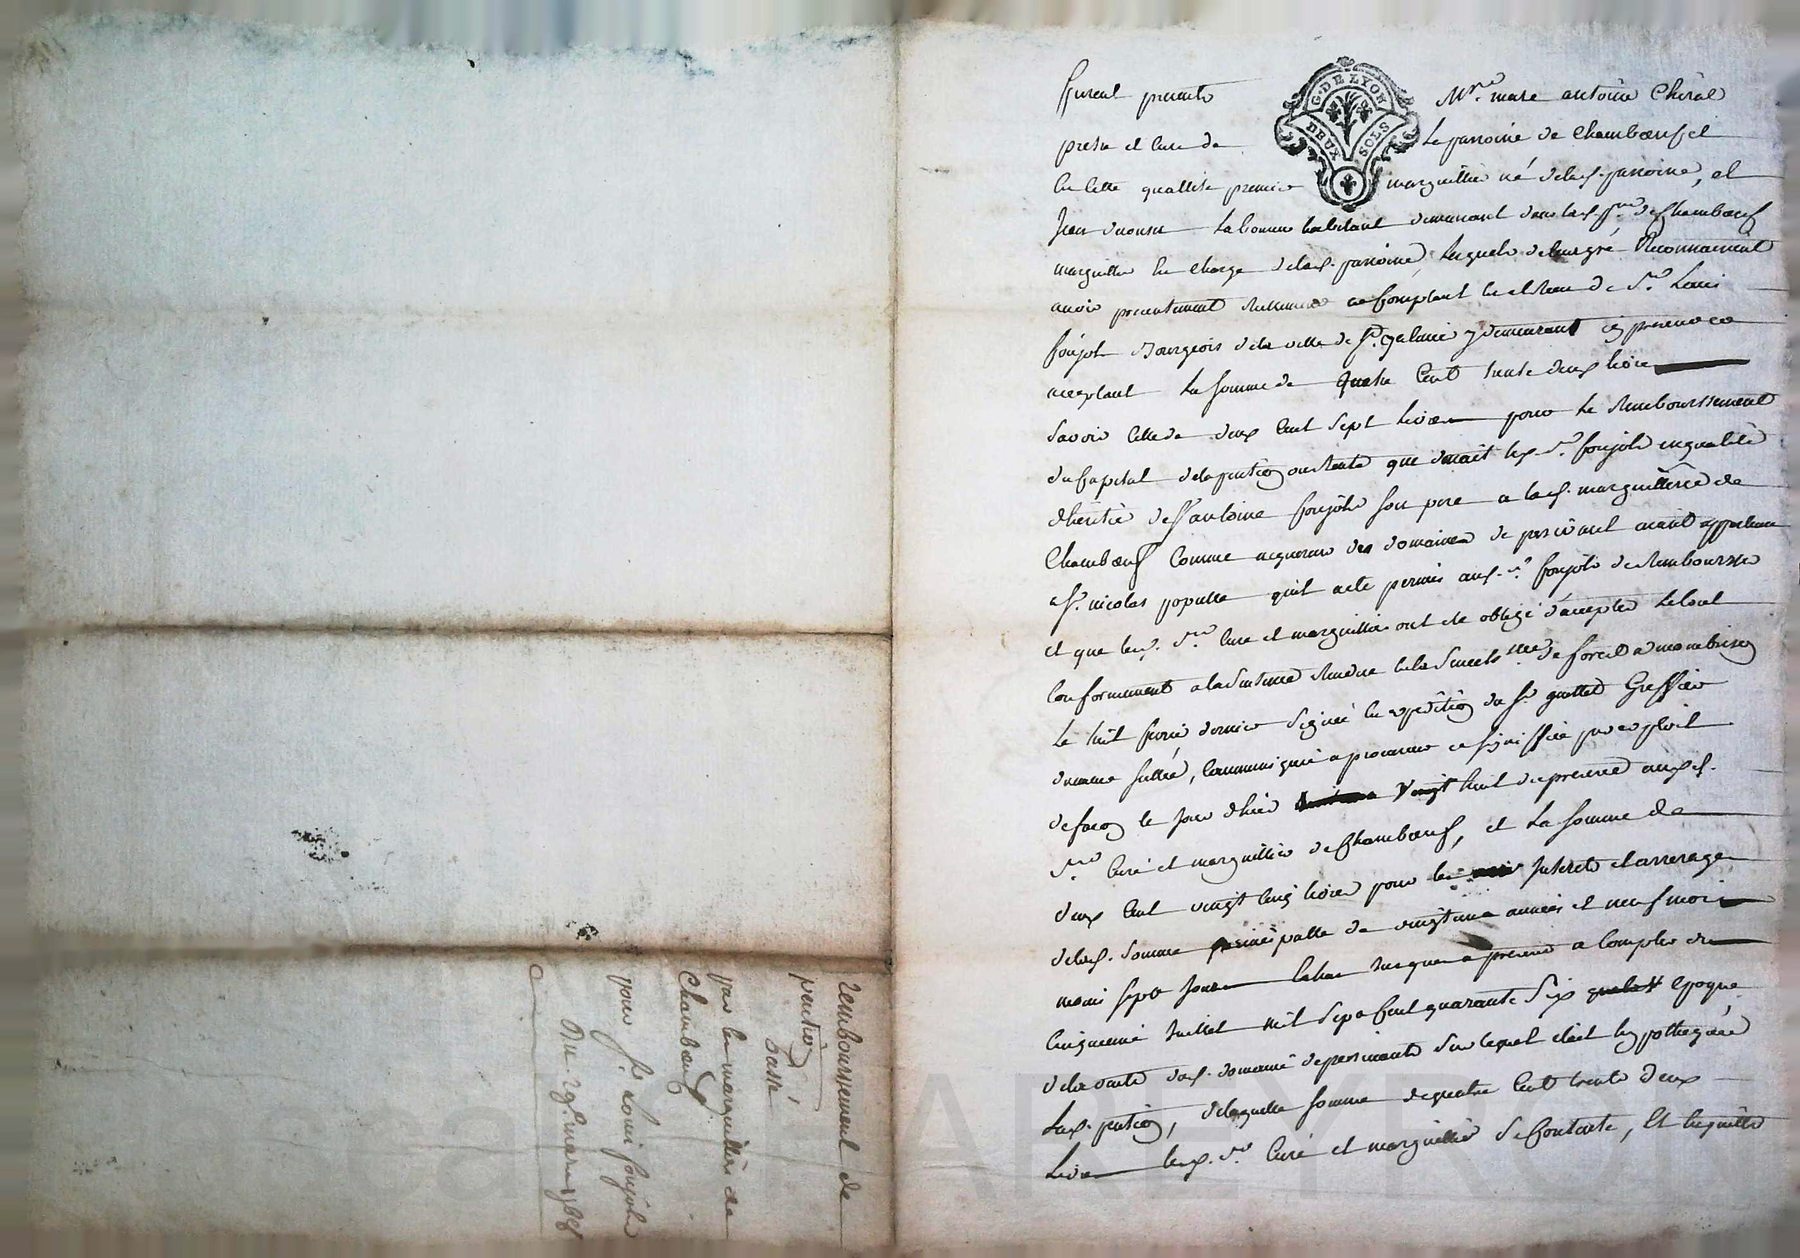 furent presents Mre. marc antoine Chirat
pretre et Curé de La parroisse de Chambœuf et
En Cette quallité premier marguillier né de lad. parroisse, et
Jean La bonne habitant demeurant dans lad. psse de Chambœuf
marguillier En Charge de lad. parroisse, Lesquels de leur gré Reconnaissent
avoir presentement Reçu comptant de Sr. Louis
foujols Bourgeois de la ville de St. galmier y demeurant cy present et
acceptant La somme de quatre Cent trente deux livres
Savoir Celle de deux Cent Sept livres pour Le Remboursement
du Capital de la pention ou Rente que devait led. Sr. foujols en qualité
d'heritier de Sr. antoine foujols son pere a lad. marguillerie de
Chambœuf Comme acquereur des domaines de apartenu
a Sr. nicolas populle qu'il a eté permis aud. Sr. foujols de Rembourser
et que lesd. Srs. Curé et marguilliers ont eté obligé d'accepter Le tout
Conformement a la Sentence Rendue En la Senechssée de forest a montbrison
Le huit fevrier dernier Signée En expedition du Sr. Greffier
duement Scellée, Communiquée a procureur et signiffiée par exploit
de le jour d'hier Vingt huit du present auxd.
Srs. Curé et marguilliers de Chambœuf, et La Somme de
deux Cent vingt Cinq livres pour les Interets et arrerages
de lad. Somme principalle de vingt une années et neuf mois
moins sept jours Echus jusques a present a Compter du
Cinquieme Juillet mil Sept Cent quarante Six epoque
de la vente dud. domaine de Sur Lequel était hypothequée
Lad. pention, de laquelle Somme de quatre Cent trente deux
Livres Lesd. Srs. Curé et marguillier se Contente, Et En quitte
remboursement de
pention
passé
par les marguilliers de
Chambœuf
pour Sr. Louis foujols
Du 29e. mars 1768
G. DE LYON
DEUX SOLS